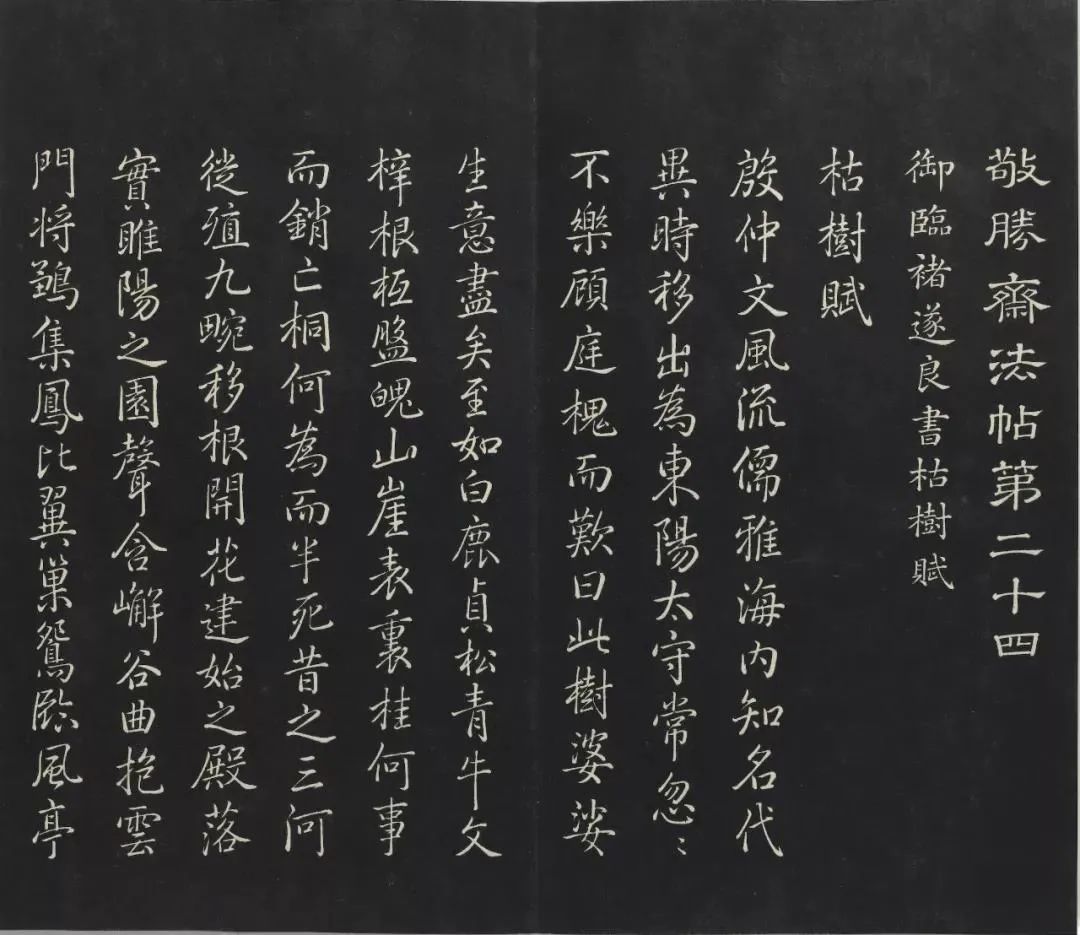 敬勝齋法帖第二十四
御臨褚遂良書枯樹賦
枯樹賦
殷仲文風流儒雅海内知名代
異時移出為東陽太守常忽〻
不樂顧庭槐而歎曰此樹婆娑
生意盡矣至如白鹿貞松青牛文
梓根柢盤魄山崖表裏桂何事
而銷亡桐何為而半死昔之三河
徙殖九畹移根開花建始之殿落
實睢陽之園聲含嶰谷曲抱雲
門將鶵集鳳比翼巢鴛臨風亭